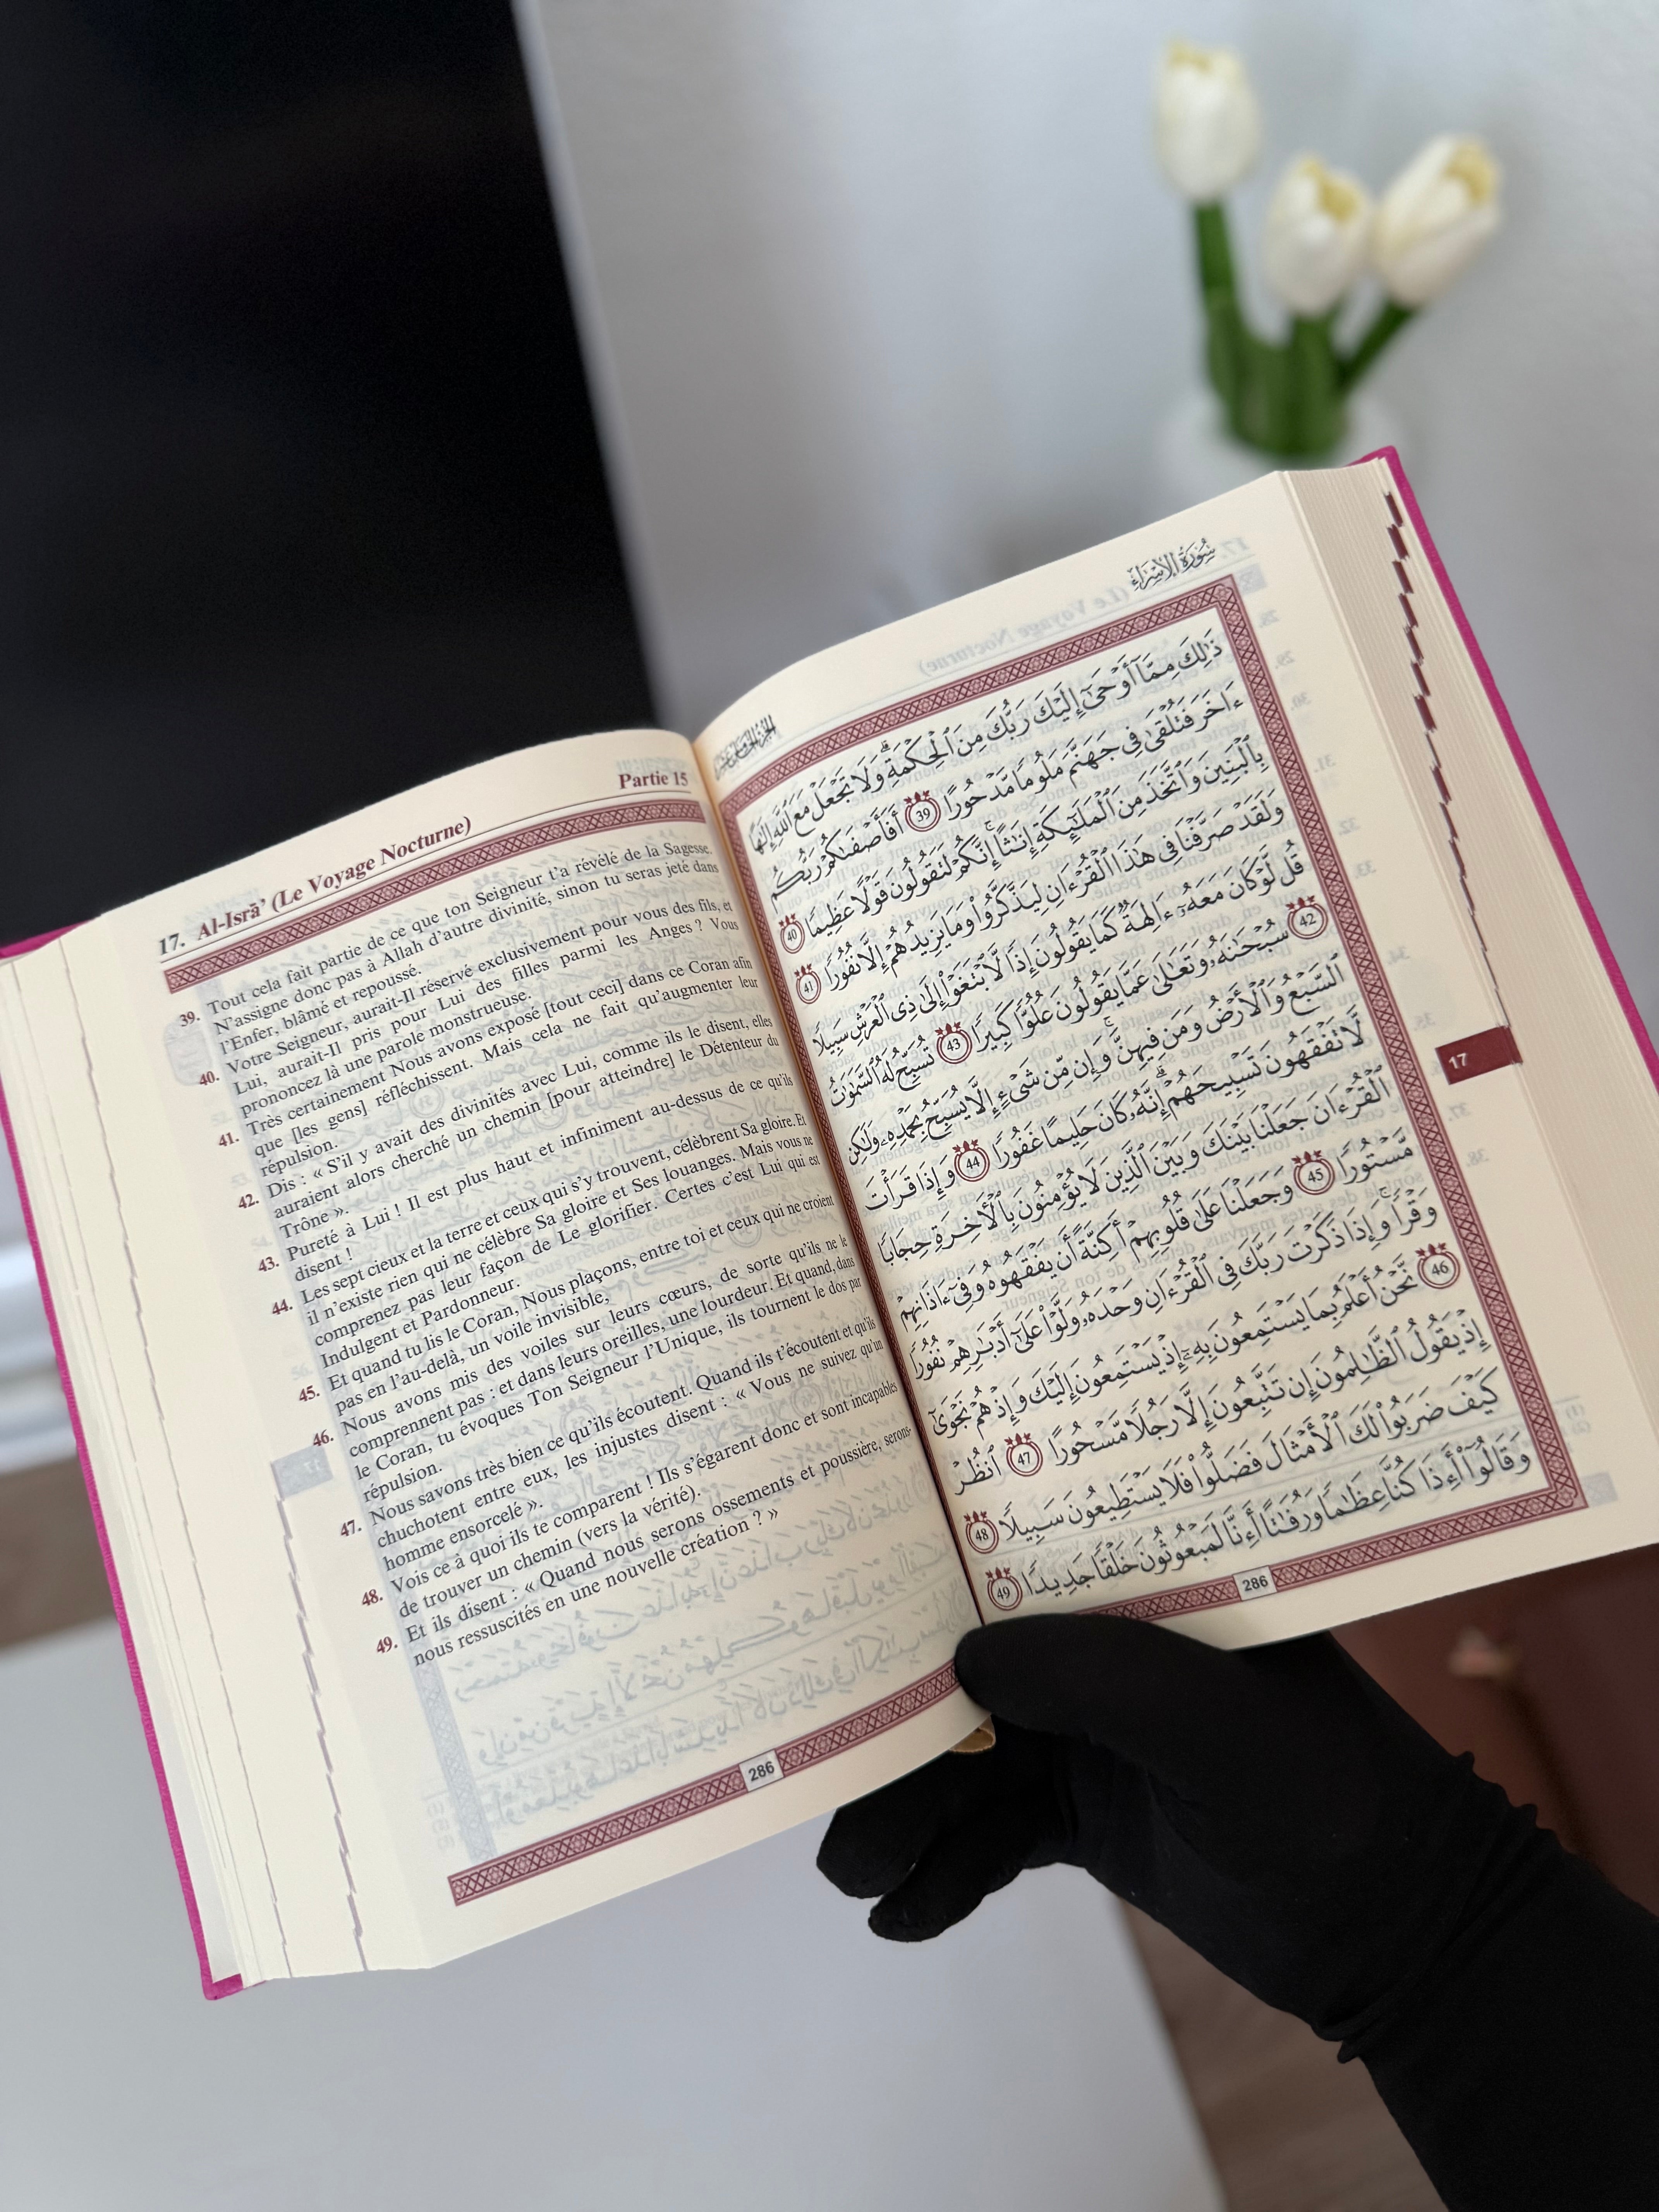 17. Al-Isrā’ (Le Voyage Nocturne)
Partie 15
39. Tout cela fait partie de ce que ton Seigneur t’a révélé de la Sagesse.
N’assigne donc pas à Allah d’autre divinité, sinon tu seras jeté dans
l’Enfer, blâmé et repoussé.
40. Votre Seigneur, aurait-Il réservé exclusivement pour vous des fils, et
Lui, aurait-Il pris pour Lui des filles parmi les Anges ? Vous
prononcez là une parole monstrueuse.
41. Très certainement Nous avons exposé [tout ceci] dans ce Coran afin
que [les gens] réfléchissent. Mais cela ne fait qu’augmenter leur
répulsion.
42. Dis : « S’il y avait des divinités avec Lui, comme ils le disent, elles
auraient alors cherché un chemin [pour atteindre] le Détenteur du
Trône ».
43. Pureté à Lui ! Il est plus haut et infiniment au-dessus de ce qu’ils
disent !
44. Les sept cieux et la terre et ceux qui s’y trouvent, célèbrent Sa gloire. Et
il n’existe rien qui ne célèbre Sa gloire et Ses louanges. Mais vous ne
comprenez pas leur façon de Le glorifier. Certes c’est Lui qui est
Indulgent et Pardonneur.
45. Et quand tu lis le Coran, Nous plaçons, entre toi et ceux qui ne croient
pas en l’au-delà, un voile invisible,
46. Nous avons mis des voiles sur leurs cœurs, de sorte qu’ils ne le
comprennent pas : et dans leurs oreilles, une lourdeur. Et quand, dans
le Coran, tu évoques Ton Seigneur l’Unique, ils tournent le dos par
répulsion.
47. Nous savons très bien ce qu’ils écoutent. Quand ils t’écoutent et qu’ils
chuchotent entre eux, les injustes disent : « Vous ne suivez qu’un
homme ensorcelé ».
48. Vois ce à quoi ils te comparent ! Ils s’égarent donc et sont incapables
de trouver un chemin (vers la vérité).
49. Et ils disent : « Quand nous serons ossements et poussière, serons-
nous ressuscités en une nouvelle création ? »
286
سُورَةُ الإِسْرَاءِ
الجُزْءُ الخَامِسَ عَشَرَ
ذَٰلِكَ مِمَّآ أَوْحَىٰٓ إِلَيْكَ رَبُّكَ مِنَ ٱلْحِكْمَةِ ۗ وَلَا تَجْعَلْ مَعَ ٱللَّهِ إِلَٰهًا
ءَاخَرَ فَتُلْقَىٰ فِى جَهَنَّمَ مَلُومًا مَّدْحُورًا 39 أَفَأَصْفَىٰكُمْ رَبُّكُم
بِٱلْبَنِينَ وَٱتَّخَذَ مِنَ ٱلْمَلَٰٓئِكَةِ إِنَٰثًا ۚ إِنَّكُمْ لَتَقُولُونَ قَوْلًا عَظِيمًا 40
وَلَقَدْ صَرَّفْنَا فِى هَٰذَا ٱلْقُرْءَانِ لِيَذَّكَّرُوا۟ وَمَا يَزِيدُهُمْ إِلَّا نُفُورًا 41
قُل لَّوْ كَانَ مَعَهُۥٓ ءَالِهَةٌ كَمَا يَقُولُونَ إِذًا لَّٱبْتَغَوْا۟ إِلَىٰ ذِى ٱلْعَرْشِ سَبِيلًا
42 سُبْحَٰنَهُۥ وَتَعَٰلَىٰ عَمَّا يَقُولُونَ عُلُوًّا كَبِيرًا 43 تُسَبِّحُ لَهُ ٱلسَّمَٰوَٰتُ
ٱلسَّبْعُ وَٱلْأَرْضُ وَمَن فِيهِنَّ ۚ وَإِن مِّن شَىْءٍ إِلَّا يُسَبِّحُ بِحَمْدِهِۦ وَلَٰكِن
لَّا تَفْقَهُونَ تَسْبِيحَهُمْ ۗ إِنَّهُۥ كَانَ حَلِيمًا غَفُورًا 44 وَإِذَا قَرَأْتَ
ٱلْقُرْءَانَ جَعَلْنَا بَيْنَكَ وَبَيْنَ ٱلَّذِينَ لَا يُؤْمِنُونَ بِٱلْءَاخِرَةِ حِجَابًا
مَّسْتُورًا 45 وَجَعَلْنَا عَلَىٰ قُلُوبِهِمْ أَكِنَّةً أَن يَفْقَهُوهُ وَفِىٓ ءَاذَانِهِمْ
وَقْرًا ۚ وَإِذَا ذَكَرْتَ رَبَّكَ فِى ٱلْقُرْءَانِ وَحْدَهُۥ وَلَّوْا۟ عَلَىٰٓ أَدْبَٰرِهِمْ نُفُورًا
46 نَّحْنُ أَعْلَمُ بِمَا يَسْتَمِعُونَ بِهِۦٓ إِذْ يَسْتَمِعُونَ إِلَيْكَ وَإِذْ هُمْ نَجْوَىٰٓ
إِذْ يَقُولُ ٱلظَّٰلِمُونَ إِن تَتَّبِعُونَ إِلَّا رَجُلًا مَّسْحُورًا 47 ٱنظُرْ
كَيْفَ ضَرَبُوا۟ لَكَ ٱلْأَمْثَالَ فَضَلُّوا۟ فَلَا يَسْتَطِيعُونَ سَبِيلًا 48
وَقَالُوٓا۟ أَءِذَا كُنَّا عِظَٰمًا وَرُفَٰتًا أَءِنَّا لَمَبْعُوثُونَ خَلْقًا جَدِيدًا 49
286
17